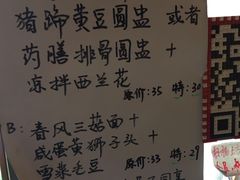 猪蹄黄豆圆盅 或者
药膳排骨圆盅 +
凉拌西兰花
原价:35 特:30
B: 春风三菇面 +
咸蛋黄狮子头 +
雪菜毛豆
原价:33 特:29